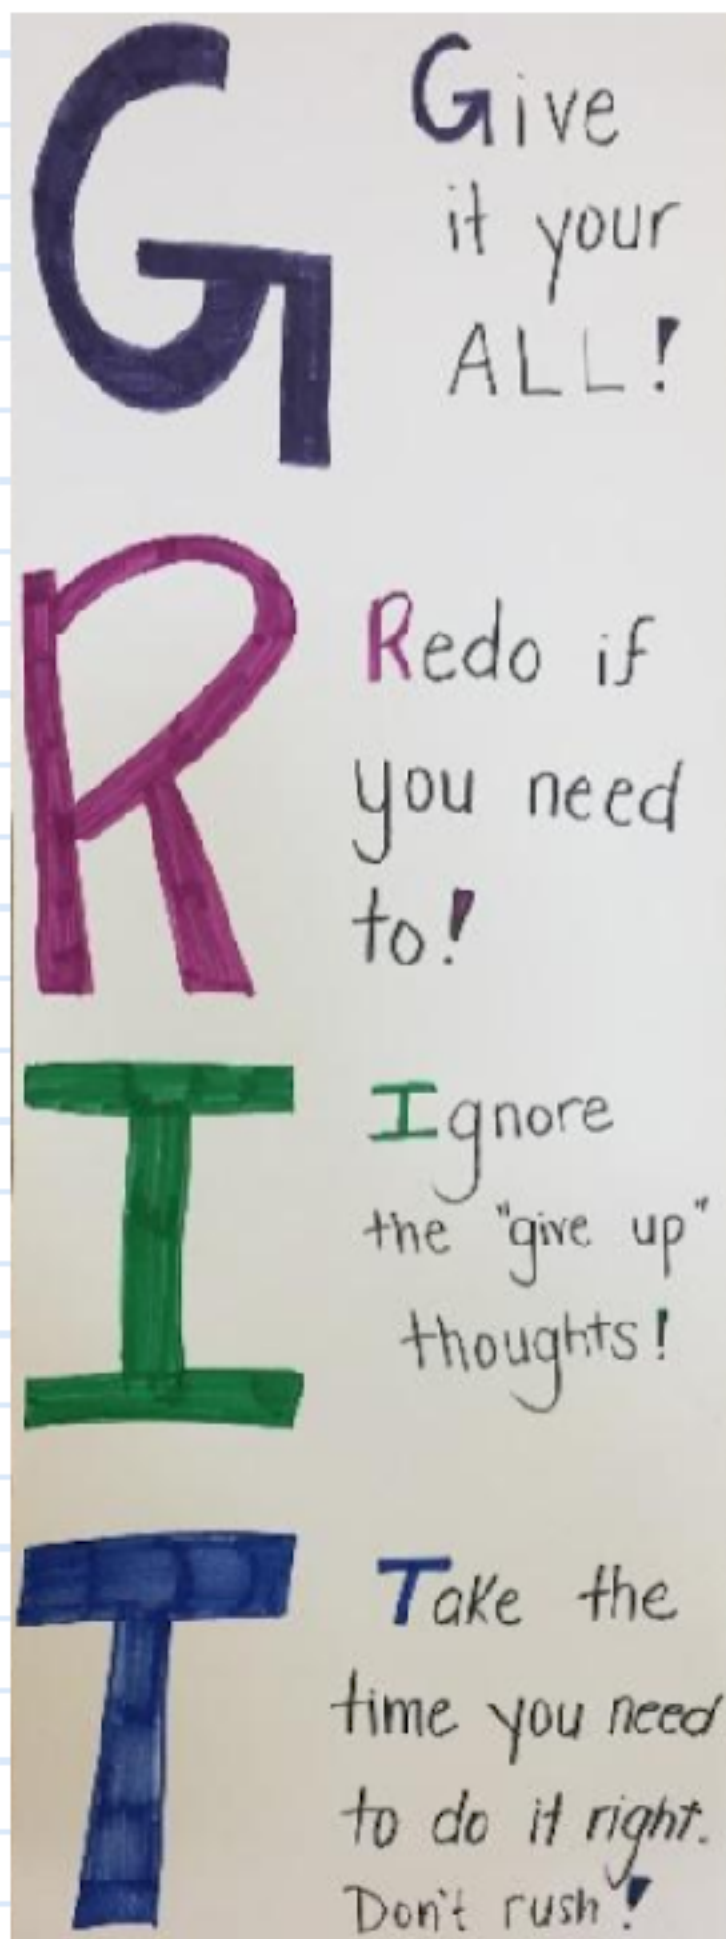 G
Give
it your
ALL!
R
Redo if
you need
to!
I
Ignore
the "give up"
thoughts!
T
Take the
time you need
to do it right.
Don't rush!